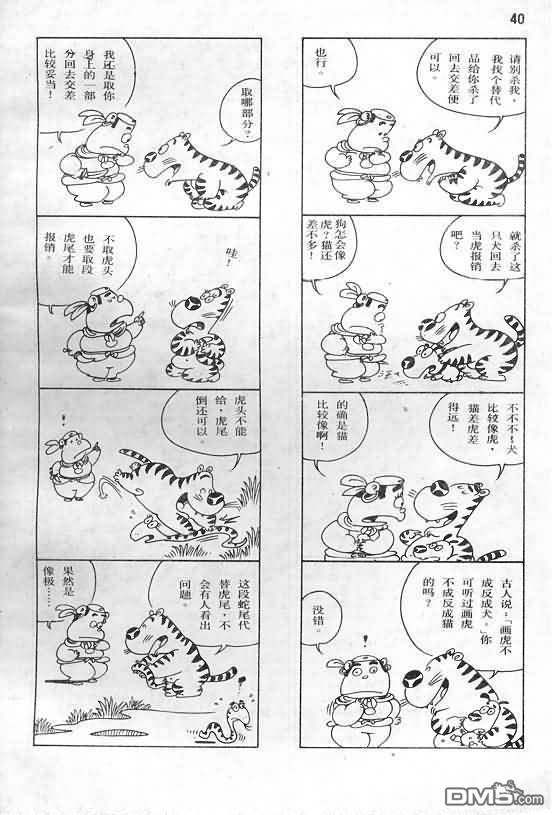 40
请别杀我，
我找个替代
品给你杀了
回去交差便
可以。
也行。
就杀了这
只犬回去
当虎报销
吧？
狗怎会像
虎？猫还
差不多！
不不不！犬
比较像虎，
猫差虎差
得远！
的确是猫
比较像啊！
古人说：「画虎不
成反成犬。」你
可听过画虎
不成反成猫
的吗？
没错。
我还是取你
身上的一部
分回去交差
比较妥当！
取哪部分？
不取虎头
也要取段
虎尾才能
报销。
哇！
虎头不能
给，虎尾
倒还可以。
这段蛇尾代
替虎尾，不
会有人看出
问题。
果然是
像极……
DM5.com